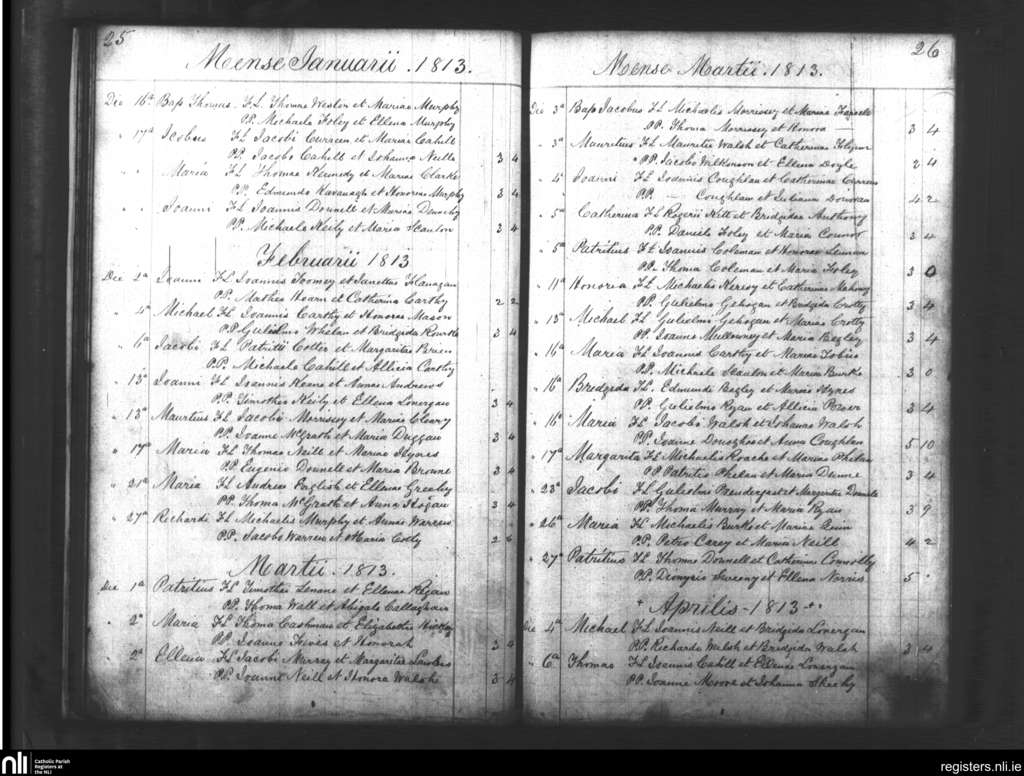 25
Mense Januarii . 1813.
Die 16ª Bap Thomas FL Thomæ Weston et Mariæ Murphy
PP. Michaele Foley et Ellena Murphy
" 17ª Jacobus FL Jacobi Curreen et Mariæ Cahill
PP. Jacobo Cahill et Johanna Neille 3 4
" " Maria FL Thomæ Kennedy et Mariæ Clarke
PP. Edmundo Kavanagh et Honora Murphy 3 4
" " Joanni FL Joannis Donnell et Mariæ
PP. Michaele Neily et Maria Scanlon 3 4
Februarii 1813
Die 2ª Joanne FL Joannis Toomey et Flanagan
PP. Matheo Hearn et Catherina Carthy 2 2
" 4ª Michael FL Joannis Carthy et Honoræ Mason
PP. Gulielmo Whelan et Bridgida Rourke 3 4
" 6ª Jacobi FL Patritii Cotter et Margaritæ Brien
P.P. Michaele Cahill et Allicia Carthy
" 13ª Joanni FL Joannis Keane et Annæ Andrews
P.P. Timotheo Neily et Ellena Lonergan 3 4
" 13ª Mauritius FL Jacobi Morrissey et Mariæ Cleary
PP. Joanne McGrath et Maria Duggan 3 4
" 17ª Maria FL Thomæ Neill et Mariæ Hynes
PP. Eugenio Donnell et Maria Browne 3 4
" 21ª Maria FL Andreæ English et Ellenæ Greehy
PP. Thoma McGrath et Anna Hogan 3 4
" 27ª Richardi FL Michaelis Murphy et Annæ Warren
P.P. Jacobo Warren et Maria
Martii . 1813.
Die 1ª Patritius FL Timothei Lenane et Ellenæ Regan
PP. Thoma Wall et Abigale Callaghan
" 2ª Maria FL Thoma Cashman et Elizabethæ Hickey
PP Joanne et Honorah 3 4
" 2ª Ellena FL Jacobi Murray et Margaritæ
PP. Joanne Neill et Honora Walsh 3 4
26
Mense Martii . 1813.
Die 3ª Bap Jacobus FL Michaelis Morrissey et Mariæ
PP. Thoma Morrissey et Honora 3 4
" 3ª Mauritius FL Mauritii Walsh et Catherinæ
PP. Jacobo Wilkinson et Ellena Doyle 2 4
" 4ª Joanni FL Joannis Coughlan et Catherinæ Curreen
PP. Coughlan et Juliana Donovan 4 2
" 5ª Catherina FL Rogerii Hill et Bridgidæ Anthony
PP. Daniele Foley et Maria Connor 3 4
" 5ª Patritius FL Joannis Coleman et Honoræ
PP. Thoma Coleman et Maria Foley 3 0
" 11ª Honoria FL Michaelis Kersey et Catherinæ Mahony
PP. Gulielmo Gehogan et Bridgida Crotty 3 4
" 15ª Michael FL Gulielmi Gehogan et Mariæ Crotty
PP. Joanne Mullowney et Maria Begley 3 4
" 16ª Maria FL Joannis Carthy et Mariæ Tobin
PP. Michaele Stanton et Maria Burke 3 0
" 16ª Bridgida FL. Edmundi Begley et Mariæ Ayres
PP. Gulielmo Ryan et Allicia Power 3 4
" 16ª Maria FL Jacobi Walsh et Johanæ Walsh
PP. Joanne Donoghue et Anna Coughlan 5 10
" 17ª Margarita FL Michaelis Roache et Mariæ Phelan
PP Patritio Phelan et Maria Dunne 3 4
" 23ª Jacobi FL Gulielmi Prendergast et Margaritæ Donnelle
PP. Thoma Murray et Maria Ryan 3 9
" 26ª Maria FL Michaelis Burke et Mariæ Quin
P.P. Petro Carey et Maria Neill 4 2
" 27ª Patritius FL Thomæ Donnell et Catherinæ Connolly
PP. Dionysio Sweeny et Ellena Norris 5
Aprilis - 1813
Die 4ª Michael FL Joannis Neill et Bridgidæ Lonergan
PP. Richardo Welsh et Bridgida Walsh 3 4
" 6ª Thomas FL Joannis Cahill et Ellenæ Lonergan
PP. Joanne Moore et Johanna Sheehy
nli Catholic Parish
Registers at
the NLI
registers.nli.ie